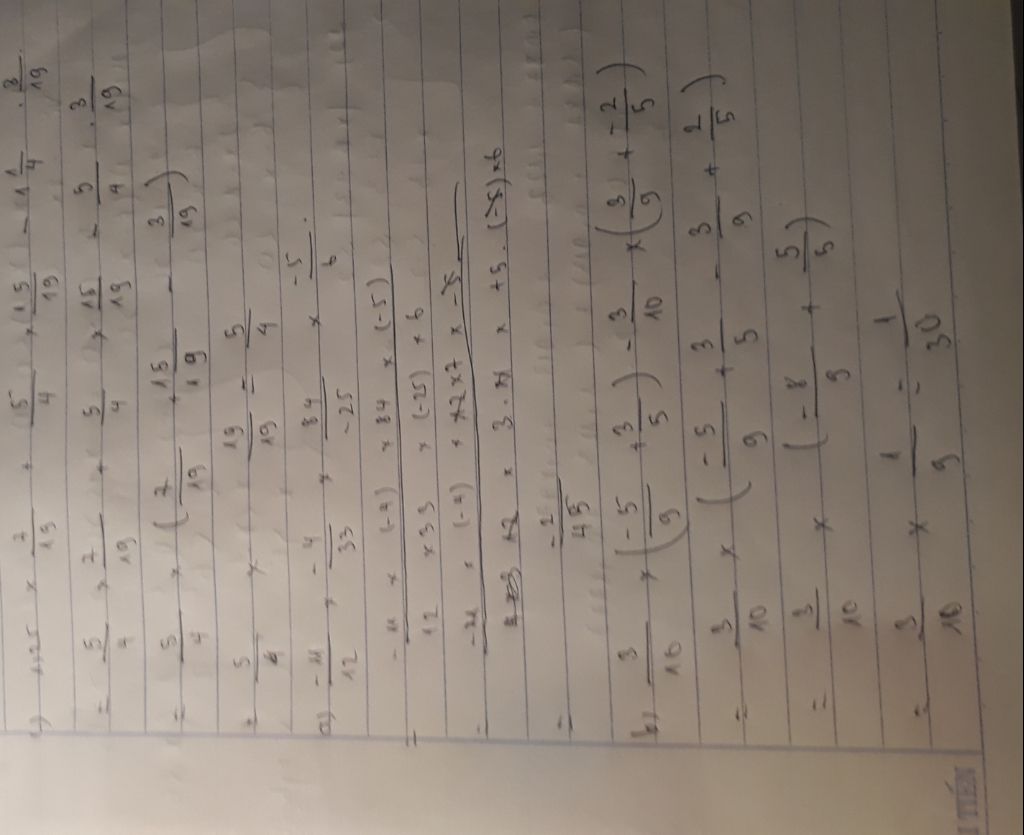 c) 1,25 × 7/19 + 5/4 × 15/19 - 1 1/4 . 3/19
= 5/4 × 7/19 + 5/4 × 15/19 - 5/4 . 3/19
= 5/4 × ( 7/19 + 15/19 - 3/19 )
= 5/4 × 19/19 = 5/4
a) -11/12 × -4/33 × 84/-25 × -5/6 .
= -11 × (-4) × 84 × (-5) / 12 × 33 × (-25) × 6
= -11 × (-4) × 12 × 7 × -5 / 12 × 3 . 11 × +5 . (-5) × 6
= -2/45
b) 3/10 × ( -5/9 + 3/5 ) - 3/10 × ( 3/9 + -2/5 )
= 3/10 × ( -5/9 + 3/5 - 3/9 + 2/5 )
= 3/10 × ( -8/9 + 5/5 )
= 3/10 × 1/9 = 1/30
TIẾN